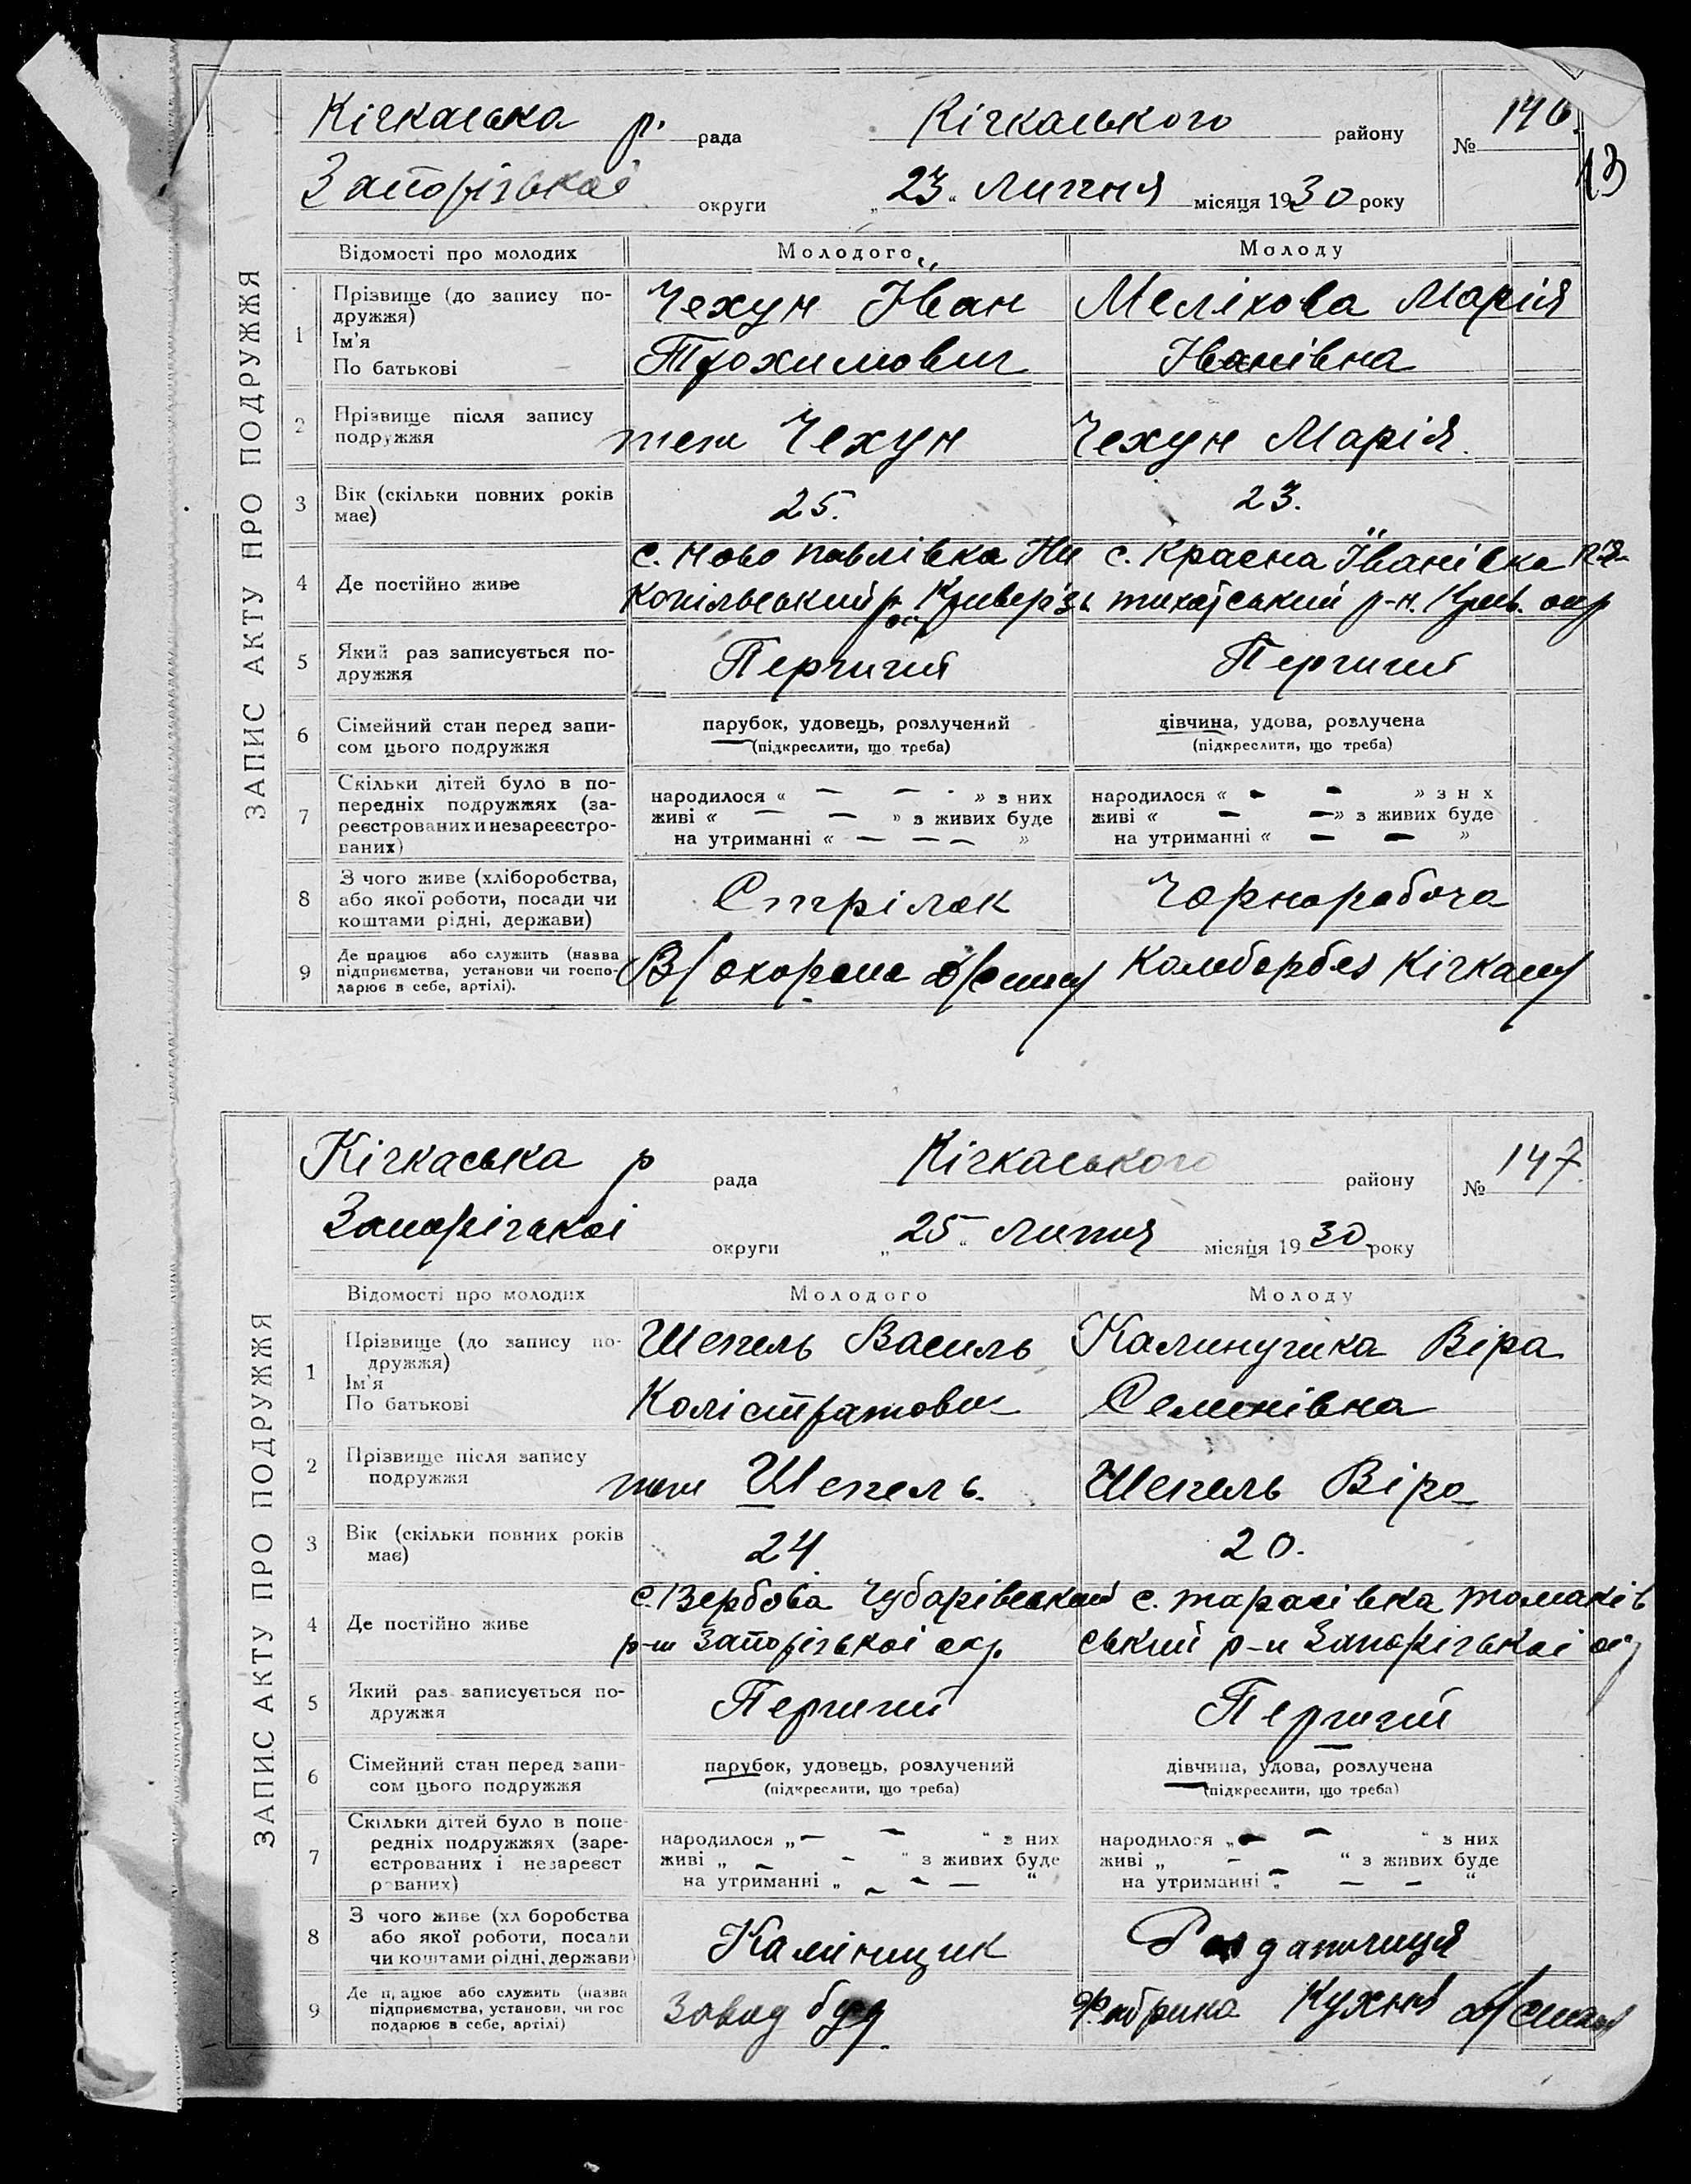 ЗАПИС АКТУ ПРО ПОДРУЖЖЯ
Кічкаська р. рада Кічкаського району № 146.
13
Запорізької округи „23“ Липня місяця 1930 року
Відомості про молодих Молодого Молоду
1 Прізвище (до запису по-
дружжя)
Ім'я
По батькові
Чехун Іван
Трохимович
Мелікова Марія
Іванівна
2 Прізвище після запису
подружжя
теж Чехун
Чехун Марія.
3 Вік (скільки повних років
має)
25.
23.
4 Де постійно живе
с. Ново Павлівка Ни
копільський р.
с. Красна Іванівка Пя-
тихатський р-н. Крив. окр
5 Який раз записується по-
дружжя
Перший
Перший
6 Сімейний стан перед запи-
сом цього подружжя
парубок, удовець, розлучений
(підкреслити, що треба)
дівчина, удова, розлучена
(підкреслити, що треба)
7 Скільки дітей було в по-
передніх подружжях (за-
реєстрованих и незареєстро-
ваних)
народилося « — — » з них
живі « — — » з живих буде
на утриманні « — — — »
народилося « — — » з н х
живі « — — » з живих буде
на утриманні « — — »
8 З чого живе (хліборобства,
або якої роботи, посади чи
коштами рідні, держави)
Стрілок
Чорноробоча
9 Де працює або служить (назва
підприємства, установи чи госпо-
дарює в себе, артілі).
В/охорона
Кічкас
ЗАПИС АКТУ ПРО ПОДРУЖЖЯ
Кічкаська р рада Кічкаського району № 147.
Запорізької округи „25“ Липня місяця 1930 року
Відомості про молодих Молодого Молоду
1 Прізвище (до запису по-
дружжя)
Ім'я
По батькові
Шепель Василь
Калістратович
Калинушка Віра
Семенівна
2 Прізвище після запису
подружжя
теж Шепель.
Шепель Віра
3 Вік (скільки повних років
має)
24
20.
4 Де постійно живе
с. Вербова Чубарівський
р-н Запорізької окр.
с. Тарасівка Томаків
ський р-н Запорізької ок
5 Який раз записується по-
дружжя
Перший
Перший
6 Сімейний стан перед запи-
сом цього подружжя
парубок, удовець, розлучений
(підкреслити, що треба)
дівчина, удова, розлучена
(підкреслити, що треба)
7 Скільки дітей було в попе-
редніх подружжях (заре-
єстрованих і незареєст
рованих)
народилося „ — — “ з них
живі „ — — “ з живих буде
на утриманні „ — — — “
народилося „ — — “ з них
живі „ — — “ з живих буде
на утриманні „ — — — “
8 З чого живе (хл боробства
або якої роботи, посади
чи коштами рідні, держави)
Камінщик
Роздатчиця
9 Де працює або служить (назва
підприємства, установи, чи гос
подарює в себе, артілі)
Завод буд.
Фабрика Кухня